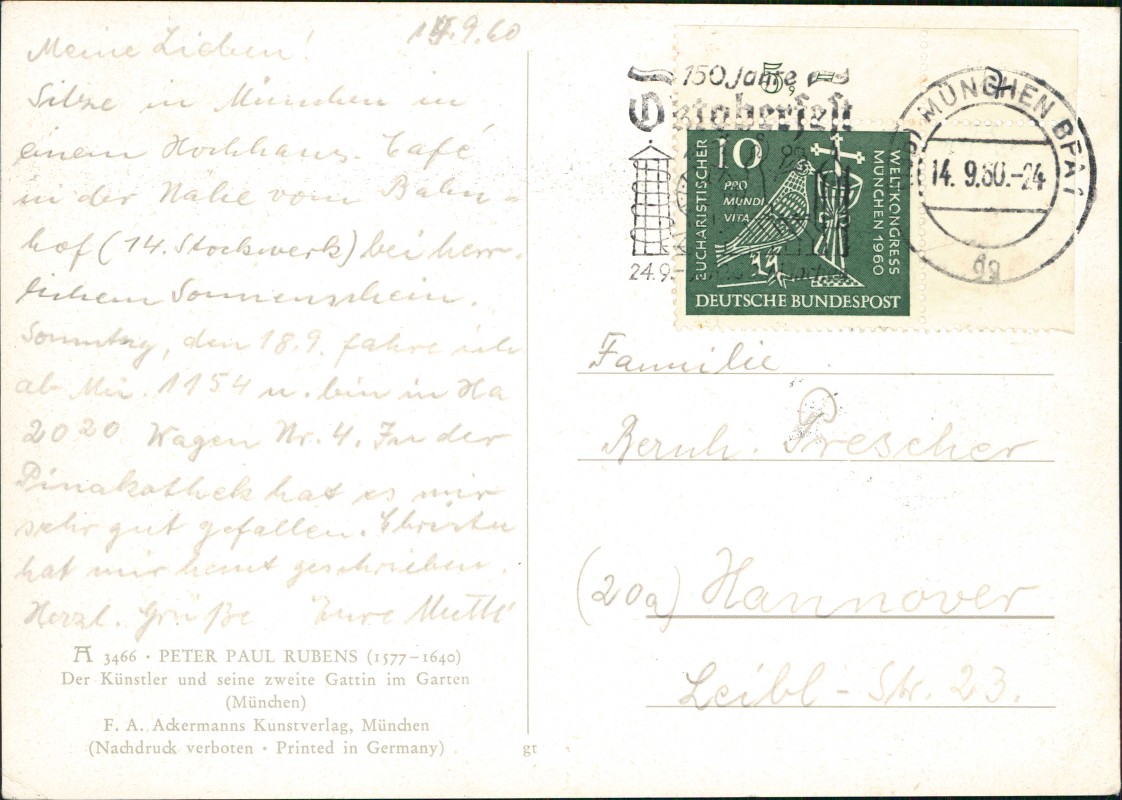 14.9.60
Meine Lieben!
Sitze in München in
einem Hochhaus-Café
in der Nähe vom Bahn-
hof (14. Stockwerk) bei herr-
lichem Sonnenschein.
Sonntag, den 18.9. fahre ich
ab Mü. 1154 u. bin in Ha
2020 Wagen Nr. 4. In der
Pinakothek hat es mir
sehr gut gefallen. Christa
hat mir heut geschrieben.
Herzl. Grüße Eure Mutti
A 3466 · PETER PAUL RUBENS (1577–1640)
Der Künstler und seine zweite Gattin im Garten
(München)
F. A. Ackermanns Kunstverlag, München
(Nachdruck verboten · Printed in Germany)
gt
5,-
150 Jahre
Oktoberfest
24.9.-
MÜNCHEN BPA
14. 9.60.-24
dg
10
PRO
MUNDI
VITA
EUCHARISTISCHER
WELTKONGRESS
MÜNCHEN 1960
DEUTSCHE BUNDESPOST
Familie
Bernh. Prescher
(20a) Hannover
Leibl-Str. 23.